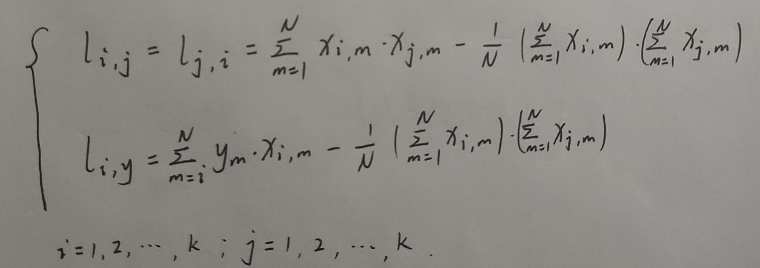 l_{i,j} = l_{j,i} = \sum_{m=1}^{N} x_{i,m} \cdot x_{j,m} - \frac{1}{N} \left( \sum_{m=1}^{N} x_{i,m} \right) \cdot \left( \sum_{m=1}^{N} x_{j,m} \right)
l_{i,y} = \sum_{m=i}^{N} y_m \cdot x_{i,m} - \frac{1}{N} \left( \sum_{m=1}^{N} x_{i,m} \right) \cdot \left( \sum_{m=1}^{N} x_{j,m} \right)
i=1,2,\cdots,k ; j=1,2,\cdots,k.